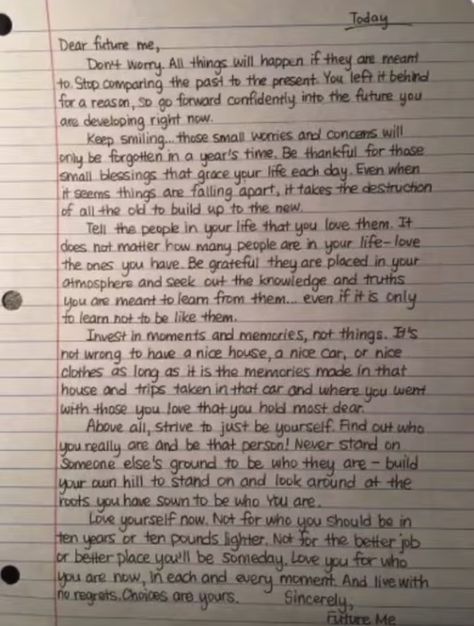 Today
Dear future me,
Don't worry. All things will happen if they are meant
to. Stop comparing the past to the present. You left it behind
for a reason, so go forward confidently into the future you
are developing right now.
Keep smiling... those small worries and concerns will
only be forgotten in a year's time. Be thankful for those
small blessings that grace your life each day. Even when
it seems things are falling apart, it takes the destruction
of all the old to build up to the new.
Tell the people in your life that you love them. It
does not matter how many people are in your life - love
the ones you have. Be grateful they are placed in your
atmosphere and seek out the knowledge and truths
you are meant to learn from them... even if it is only
to learn not to be like them.
Invest in moments and memories, not things. It's
not wrong to have a nice house, a nice car, or nice
clothes as long as it is the memories made in that
house and trips taken in that car and where you went
with those you love that you hold most dear.
Above all, strive to just be yourself. Find out who
you really are and be that person! Never stand on
someone else's ground to be who they are - build
your own hill to stand on and look around at the
roots you have sown to be who You are.
Love yourself now. Not for who you should be in
ten years or ten pounds lighter. Not for the better job
or better place you'll be someday. Love you for who
you are now, in each and every moment. And live with
no regrets. Choices are yours. Sincerely,
Future Me